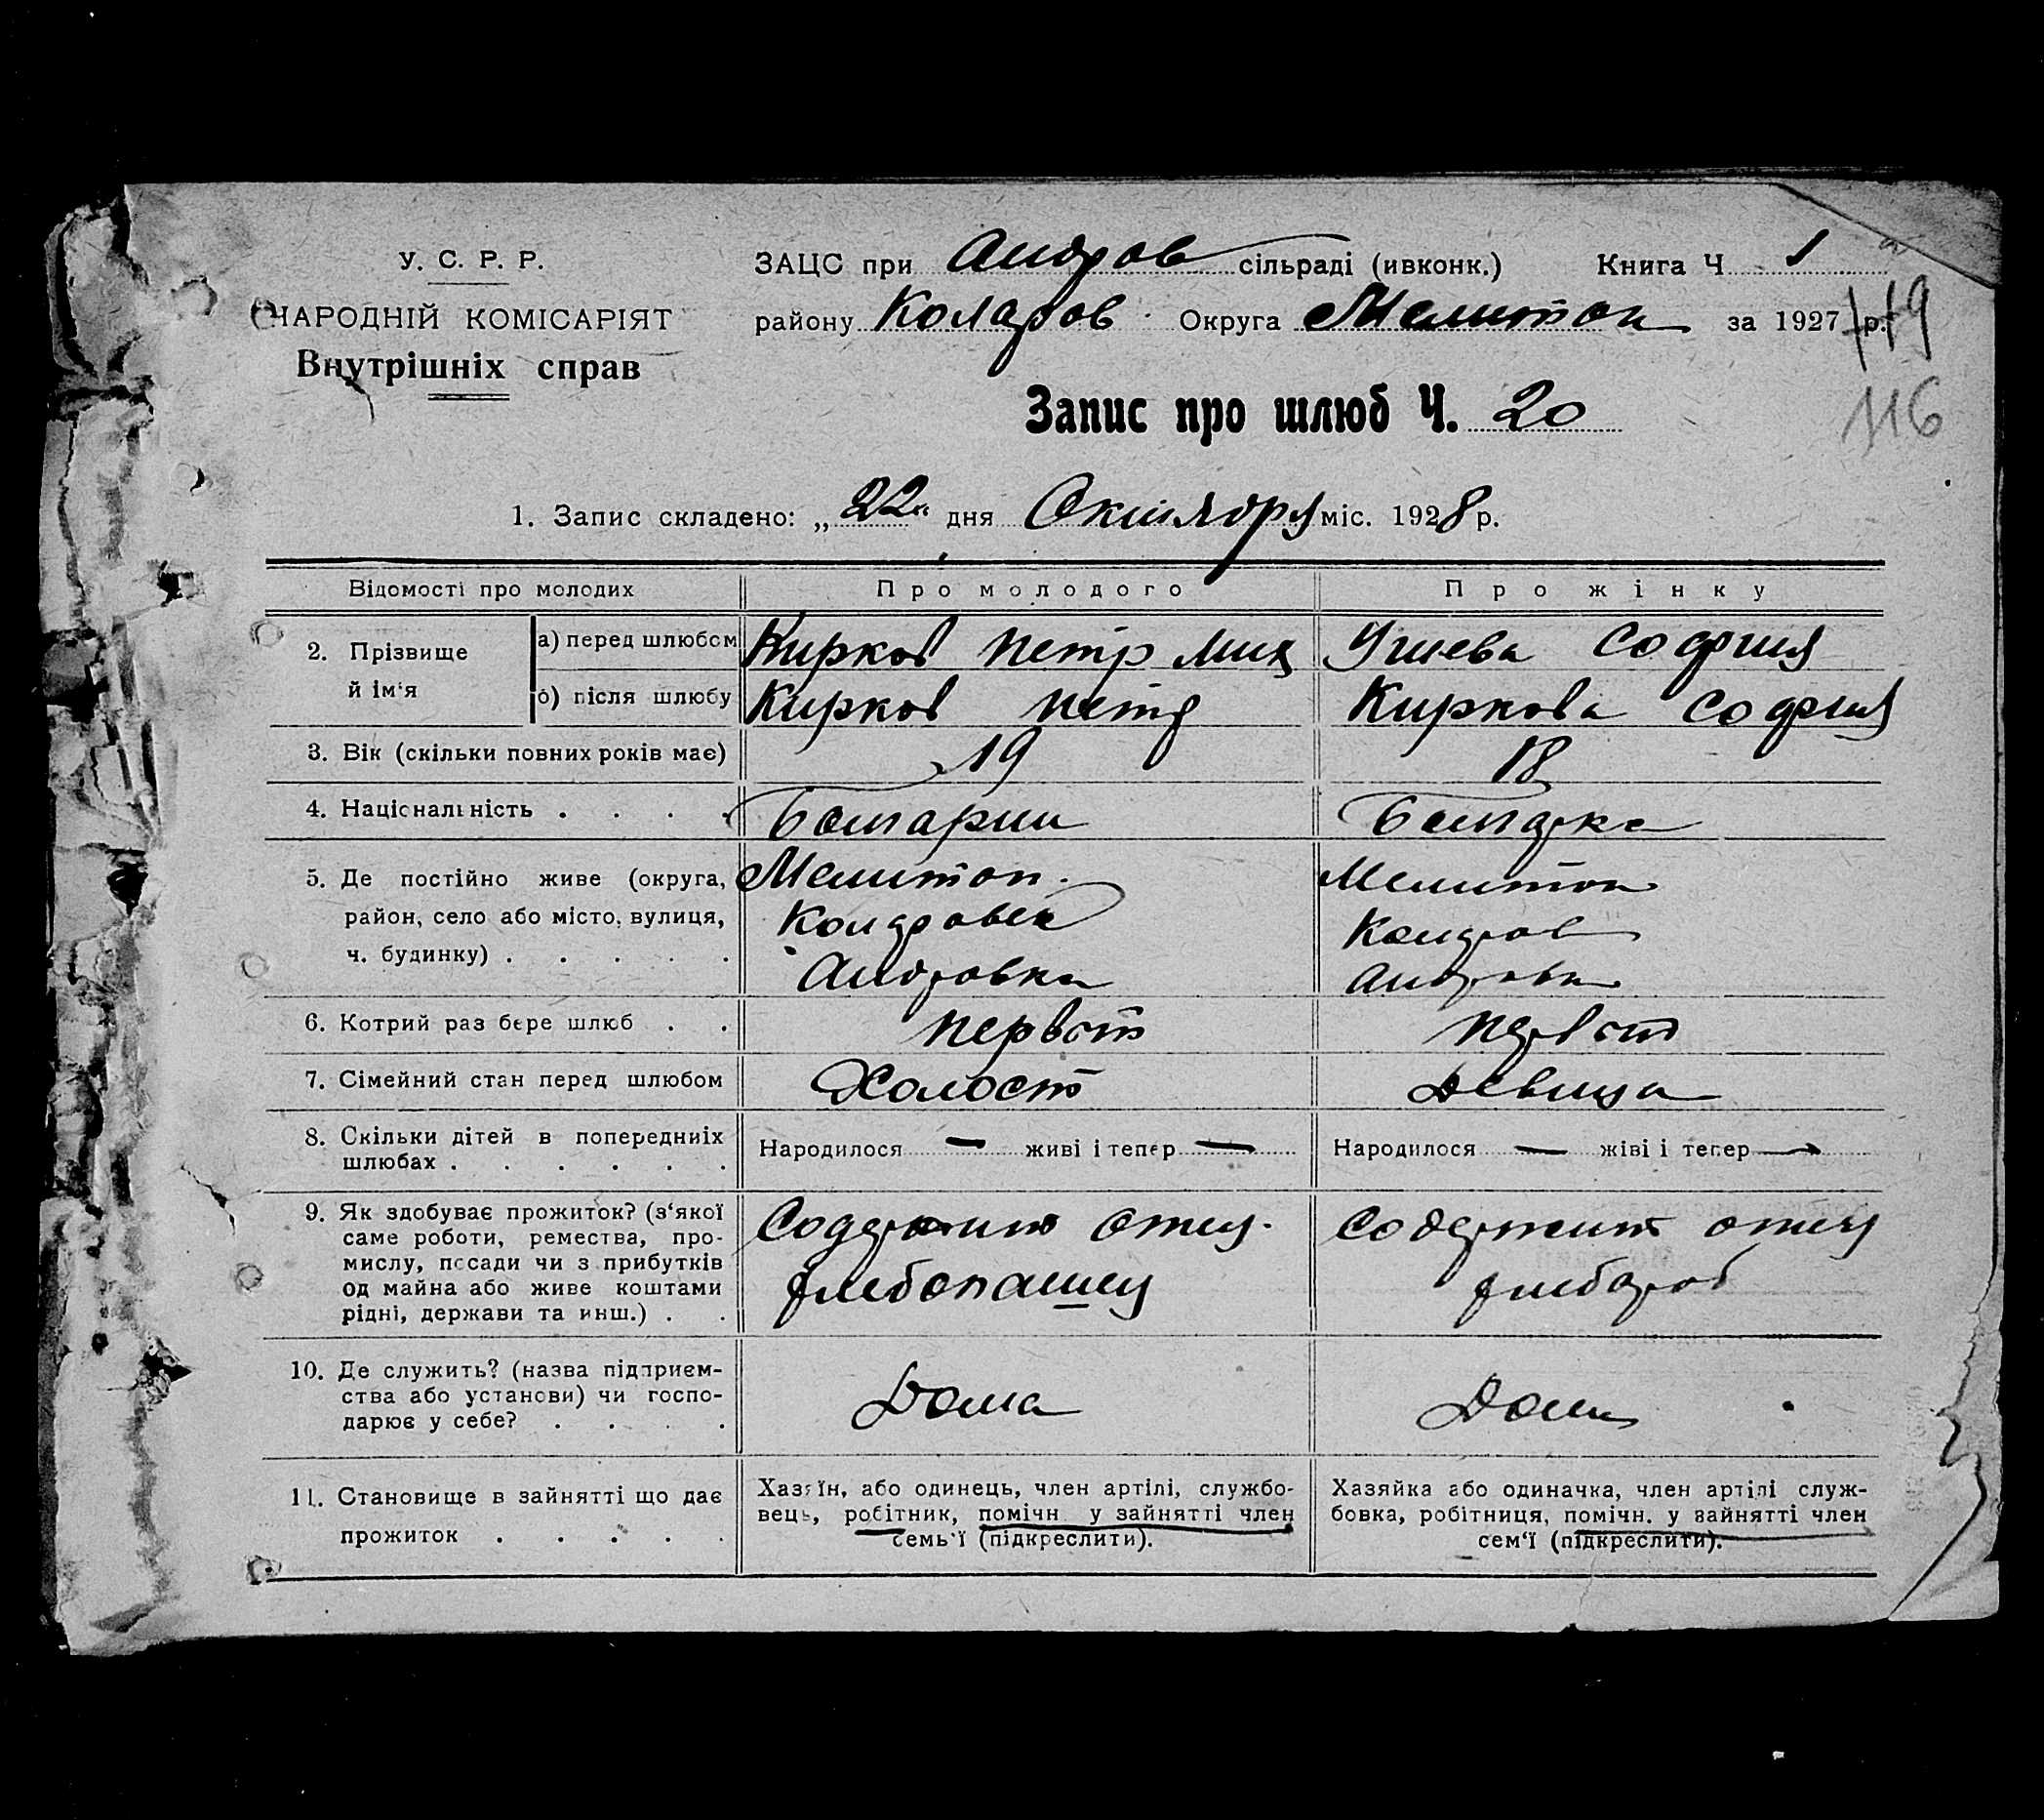 У. С. Р. Р.
НАРОДНІЙ КОМІСАРІЯТ
Внутрішніх справ
ЗАЦС при Андров сільраді (ивконк.) Книга Ч 1
району Коларов Округа Мелитоп за 1927 р. 119
116
Запис про шлюб Ч. 20
1. Запис складено: „22" дня Октября міс. 1928 р.
Відомості про молодих Про молодого Про жінку
2. Прізвище й ім'я
а) перед шлюбом Кирков Петр Мих София
б) після шлюбу Кирков Петр Киркова София
3. Вік (скільки повних років має) 19 18
4. Національність . . . . Болгарин Болгарка
5. Де постійно живе (округа, Мелитоп. Мелитоп
район, село або місто, вулиця, Коларовск Коларов
ч. будинку) . . . . . Андровка Андровка
6. Котрий раз бере шлюб . . первый первый
7. Сімейний стан перед шлюбом Холост Девица
8. Скільки дітей в попередніх Народилося — живі і тепер — Народилося — жіві і тепер —
шлюбах . . . . . .
9. Як здобуває прожиток? (з'якої Содержит отец. содержит отец
саме роботи, ремества, про-
мислу, посади чи з прибутків хлебопашец хлебороб
од майна або живе коштами
рідні, держави та инш.) . .
10. Де служить? (назва підприєм-
ства або установи) чи госпо- Дома Дома
дарює у себе? . . . .
11. Становище в зайнятті що дає
прожиток . . . . .
Хазяїн, або одинець, член артілі, службо-
вець, робітник, помічн. у зайнятті член
семь'ї (підкреслити).
Хазяйка або одиначка, член артілі служ-
бовка, робітниця, помічн. у зайнятті член
сем'ї (підкреслити).